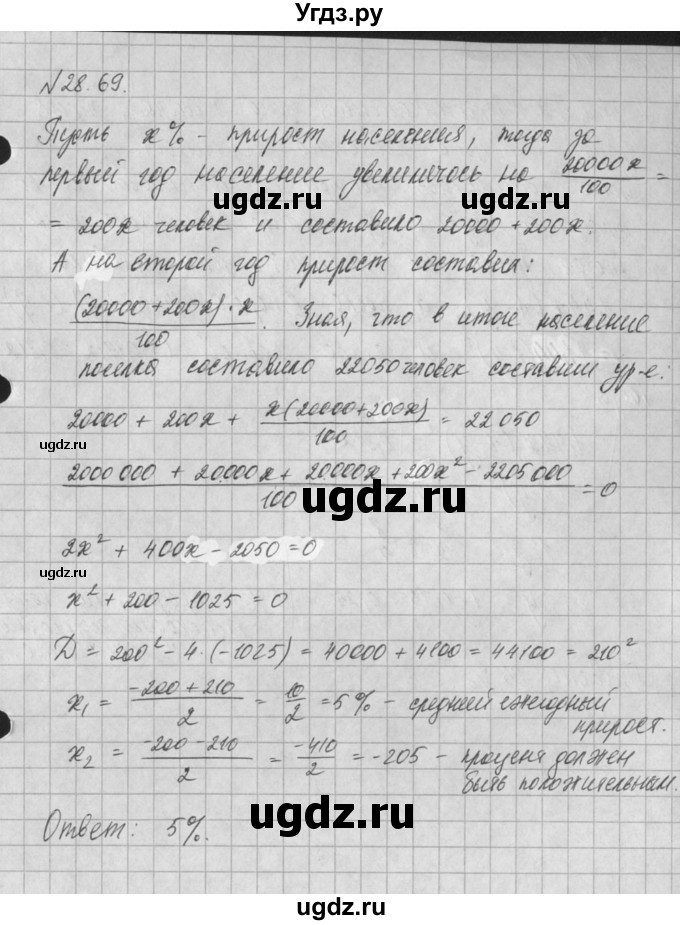 Угдз.ру
№28.69.
Пусть x% - прирост населения, тогда за
первый год население увеличилось на 20000x/100 =
= 200x человек и составило 20000 + 200x.
А на второй год прирост составил:
(20000+200x)·x/100. Зная, что в итоге население
поселка составило 22050 человек составим ур-е:
20000 + 200x + x(20000+200x)/100 = 22050
2000000 + 20000x + 20000x + 200x² - 2205000/100 = 0
2x² + 400x - 2050 = 0
x² + 200 - 1025 = 0
D = 200² - 4·(-1025) = 40000 + 4100 = 44100 = 210²
x₁ = -200 + 210/2 = 10/2 = 5% - средний ежегодный
прирост.
x₂ = -200 - 210/2 = -410/2 = -205 - процент должен
быть положительным.
Ответ: 5%.
ugdz.ru
ugdz.ru
ugdz.ru
ugdz.ru
ugdz.ru
ugdz.ru
ugdz.ru
ugdz.ru
ugdz.ru